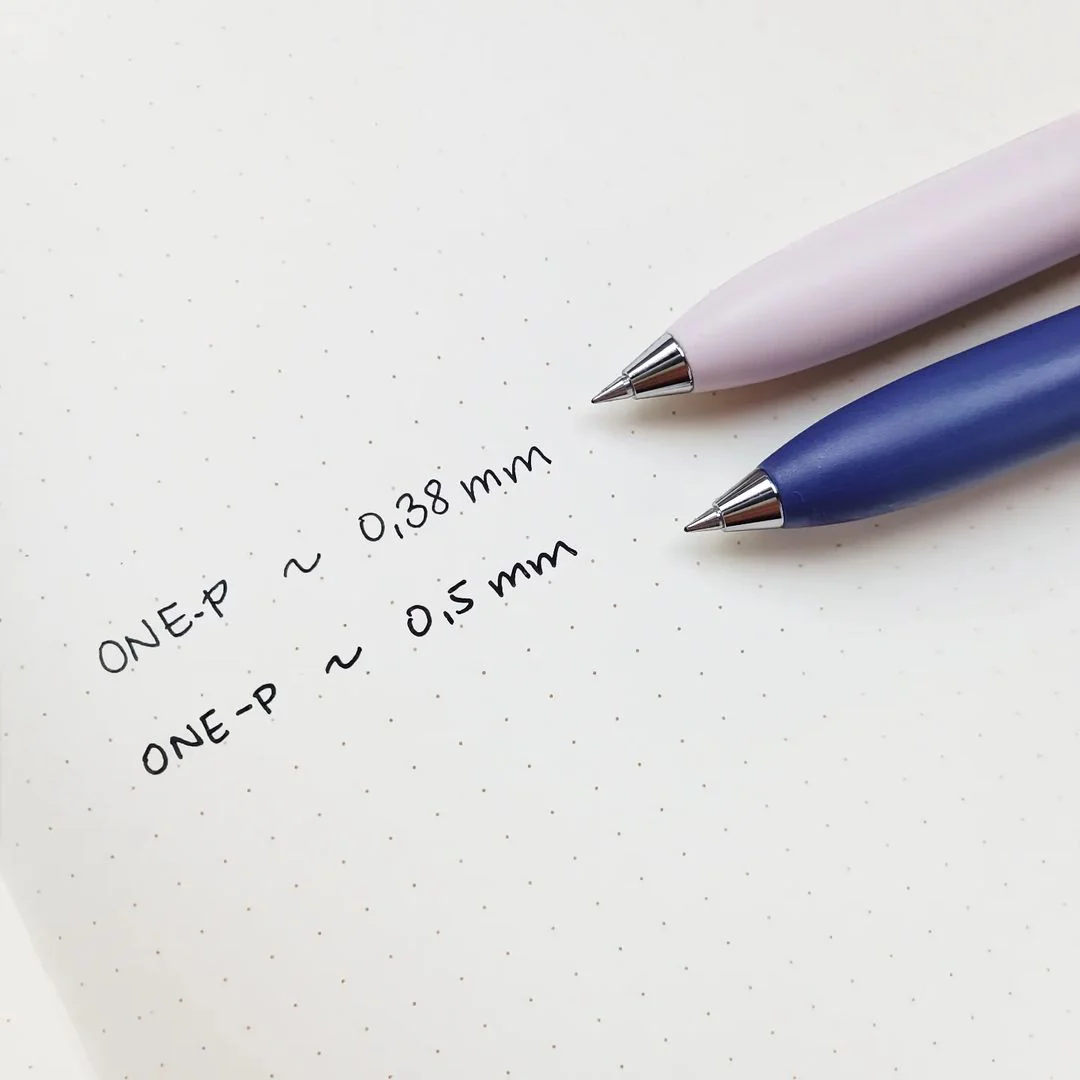 ONE-P ~ 0,38 mm
ONE-P ~ 0,5 mm